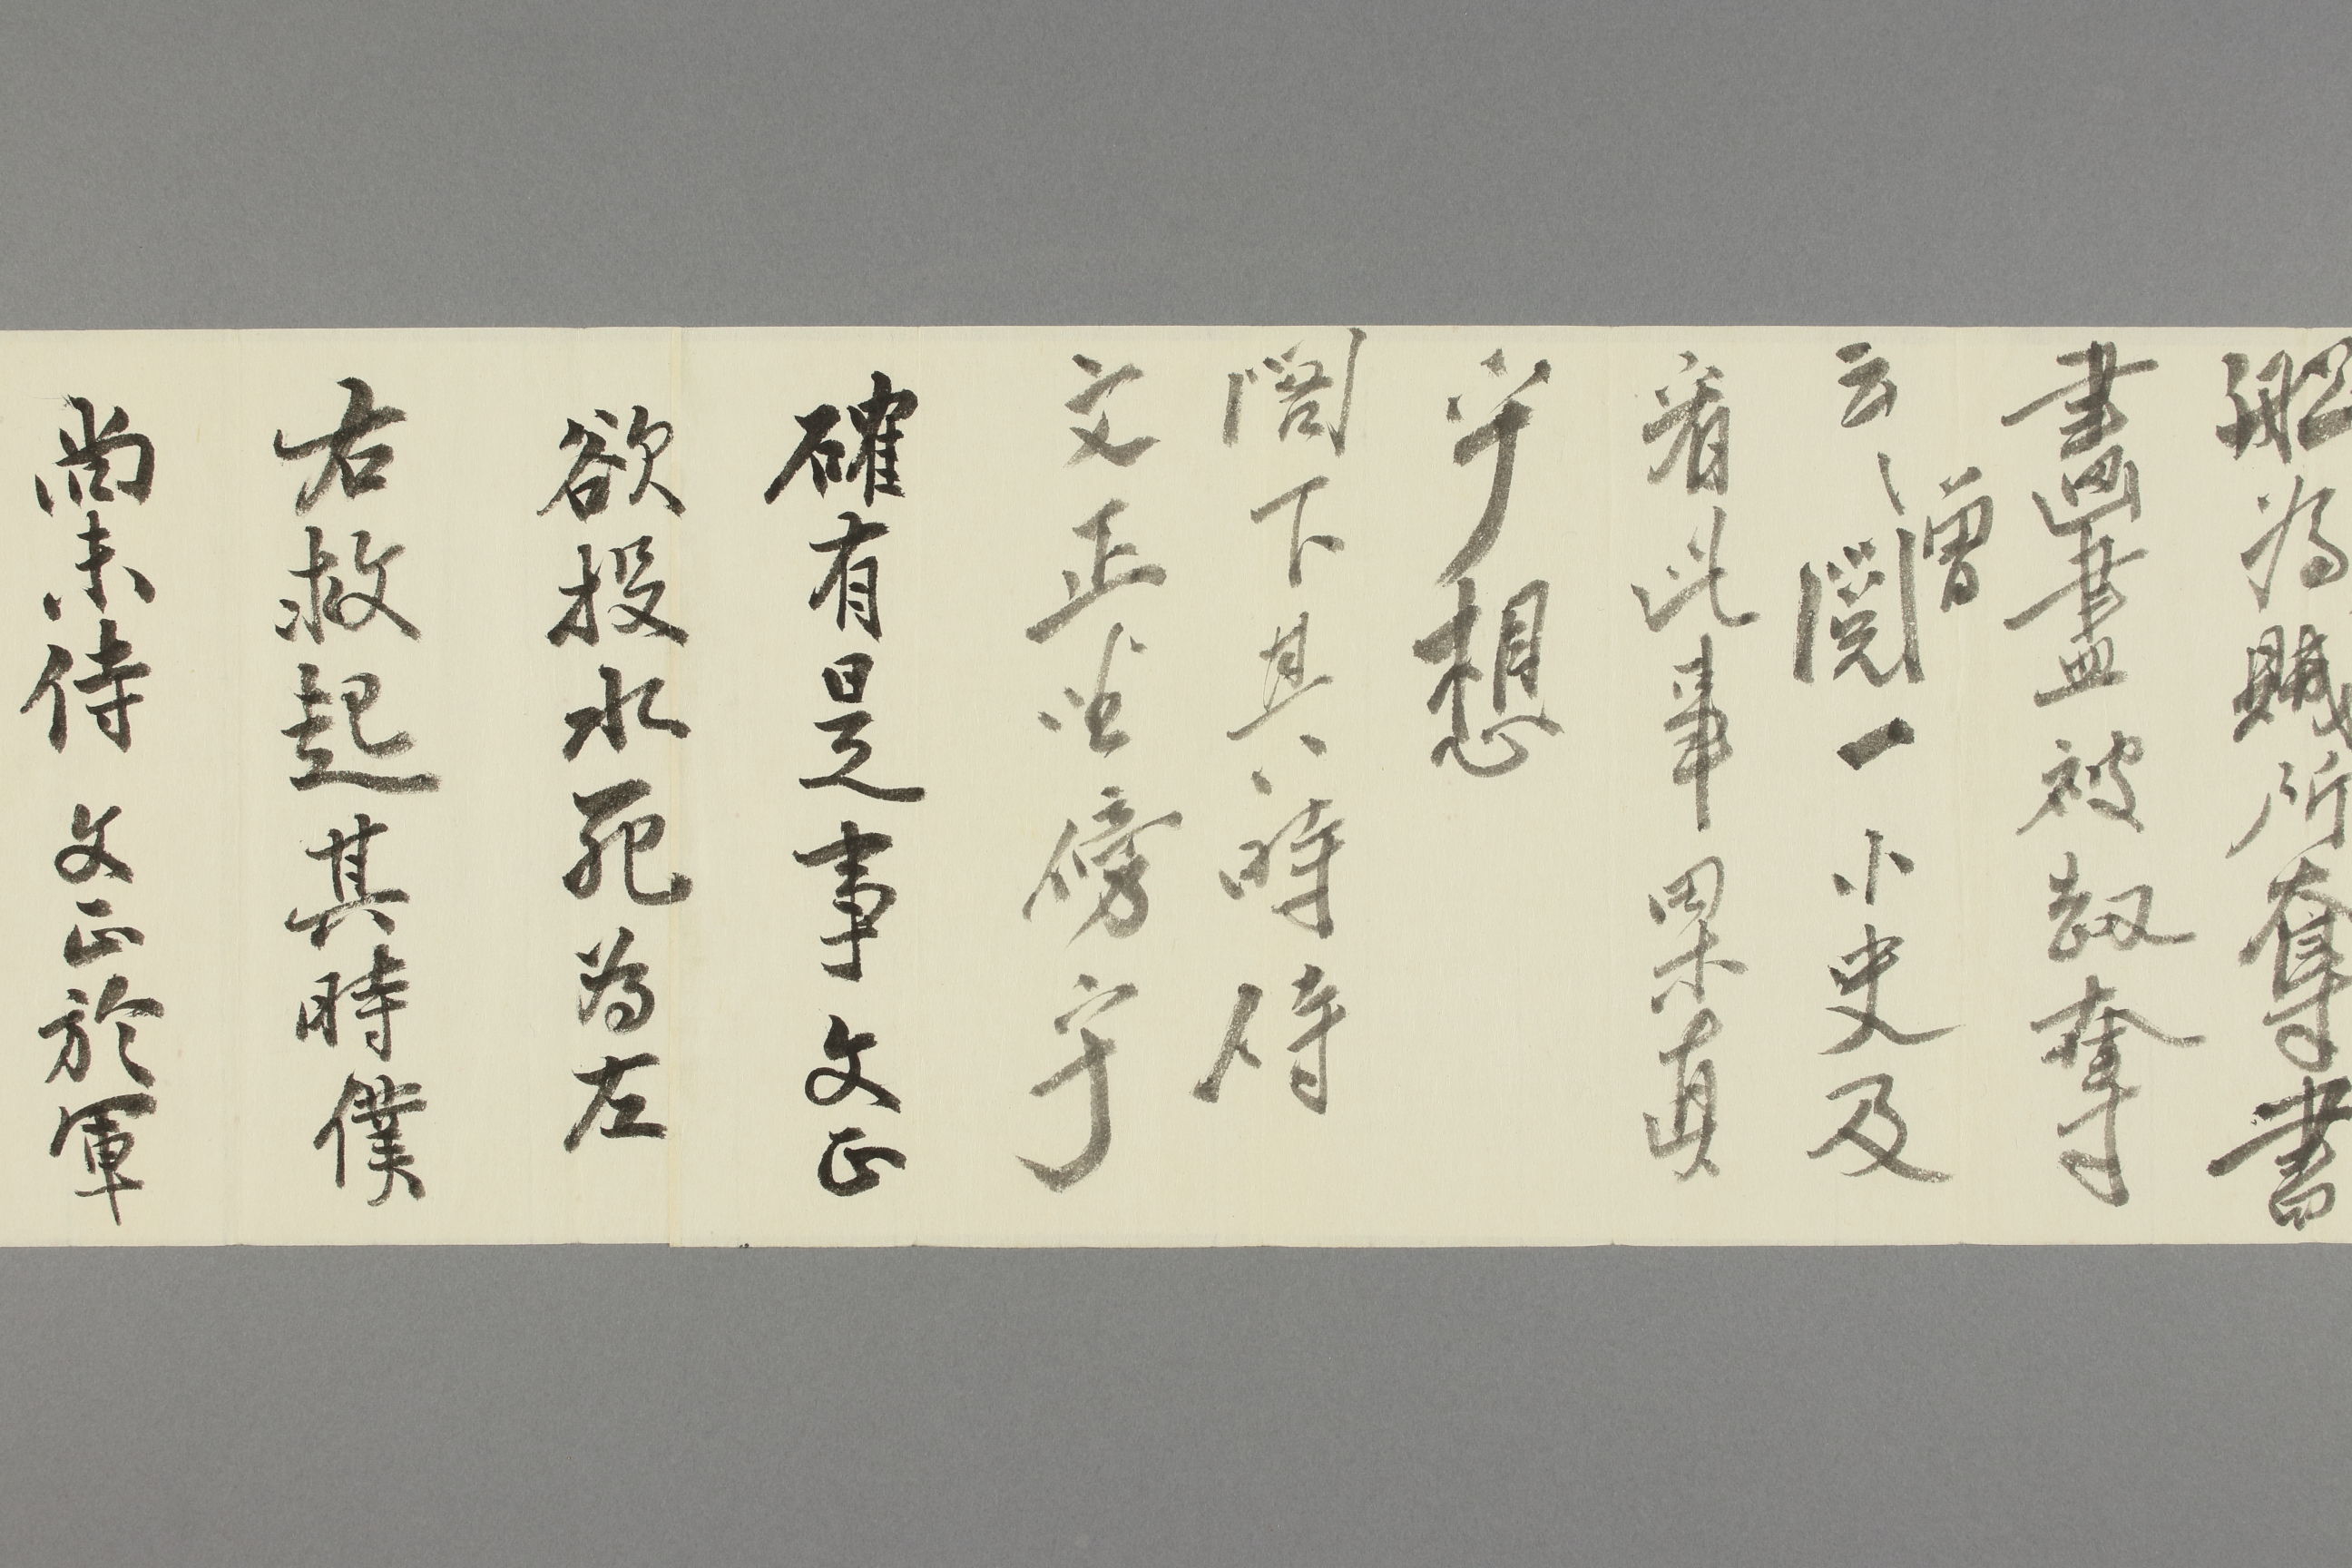 船為賊所奪書
畫盡被劫奪
云〻曾閱一小史及
着此事果真
乎想
閣下其時侍
文正坐傍乎
確有是事文正
欲投水死為左
右救起其時僕
尚未侍文正於軍